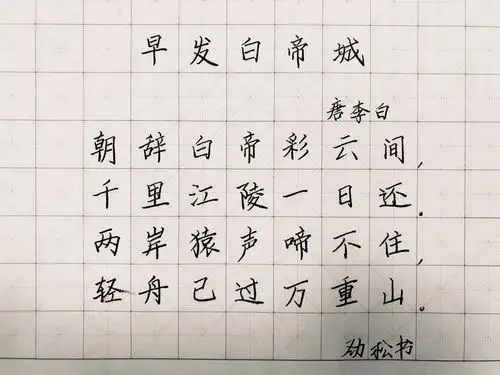 早发白帝城
唐李白
朝辞白帝彩云间，
千里江陵一日还。
两岸猿声啼不住，
轻舟已过万重山。
劲松书